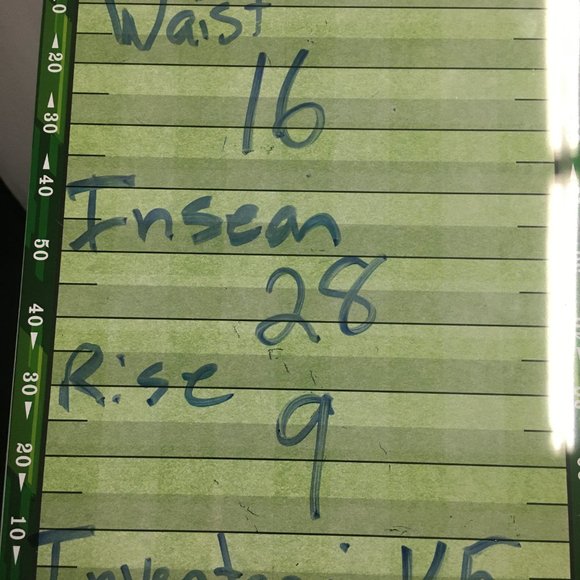 Waist
20
16
30
40
Insean
50
28
40
Rise
30
9
20
10